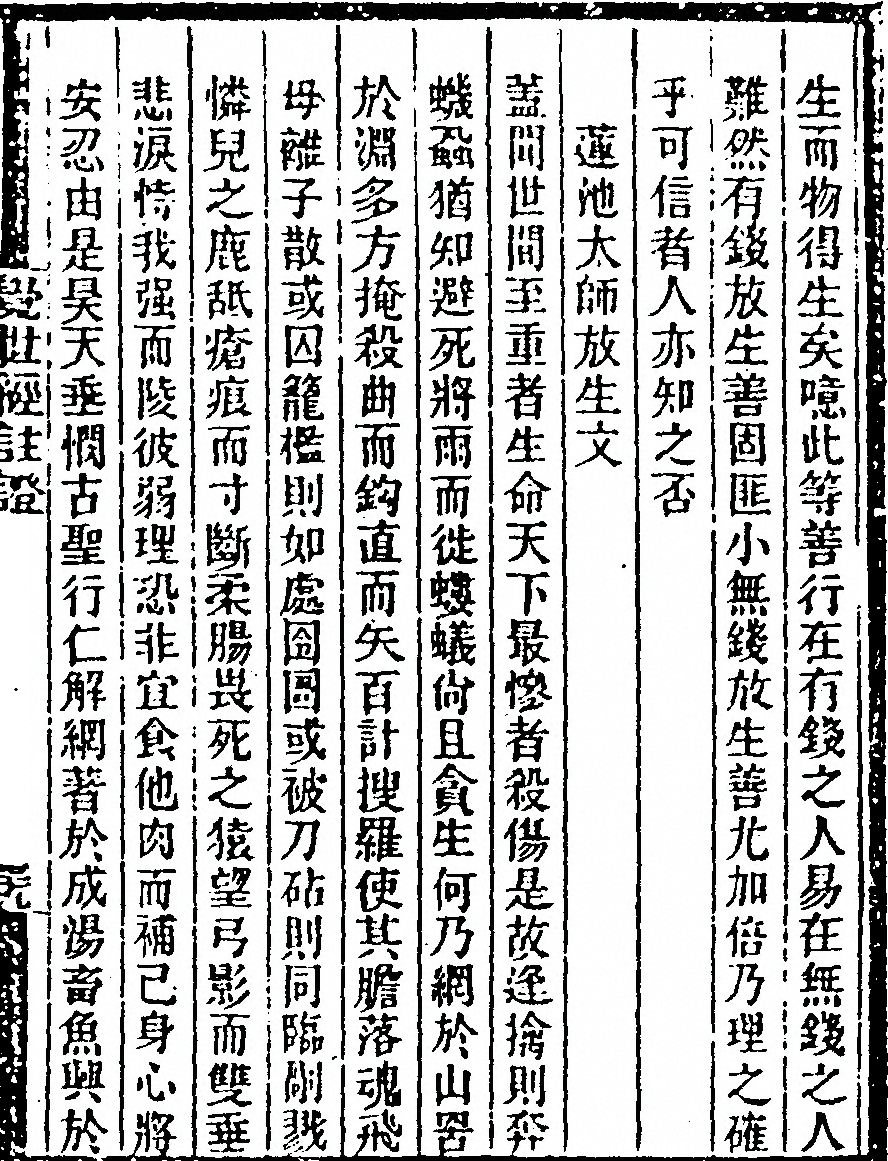 生而物得生矣噫此等善行在有錢之人易在無錢之人
難然有錢放生善固匪小無錢放生善尤加倍乃理之確
乎可信者人亦知之否
蓮池大師放生文
蓋聞世間至重者生命天下最慘者殺傷是故逢擒則奔
蟣蝨猶知避死將雨而徙螻蟻尚且貪生何乃網於山罟
於淵多方掩殺曲而鈎直而矢百計搜羅使其膽落魂飛
母離子散或囚籠檻則如處囹圄或被刀砧則同臨剮戮
憐兒之鹿舐瘡痕而寸斷柔腸畏死之猿望弓影而雙垂
悲淚恃我强而陵彼弱理恐非宜食他肉而補己身心將
安忍由是昊天垂憫古聖行仁解網著於成湯畜魚興於
覺世經註證